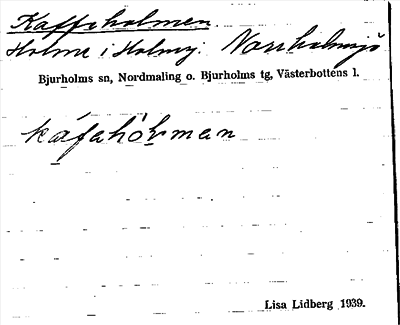 Kaffeholmen.
Holme i Holmsj. Norrholmsjö
Bjurholms sn, Nordmaling o. Bjurholms tg, Västerbottens l.
káfahòḷman
Lisa Lidberg 1939.